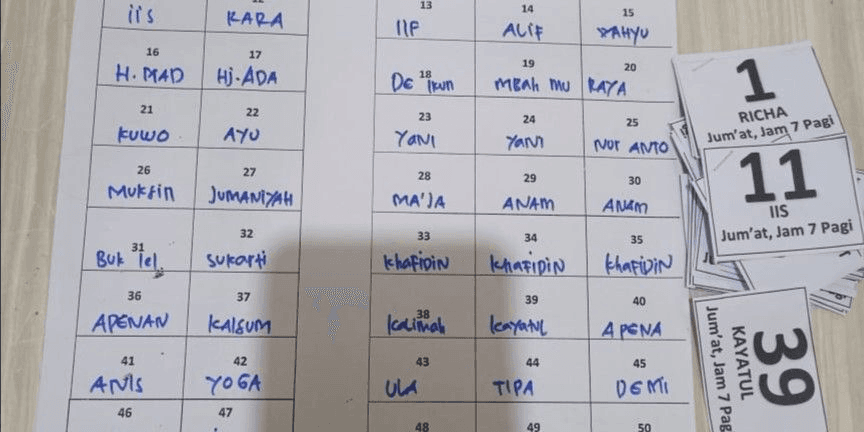 13 14 15
iis KARA IIP ALIF WAHYU
16 17 18 19 20
H. MAD Hj. ADA DE IKUN MBAH MU RAYA
21 22 23 24 25
KUWO AYU YANI YANI NUR ANTO
26 27 28 29 30
MUKSIN JUMANIYAH MA'JA ANAM ANAM
31 32 33 34 35
BUK lel SUKARTI KHAFIDIN KHAFIDIN KHAFIDIN
36 37 38 39 40
APENAN KALSUM KALIMAH KAYATUL APENA
41 42 43 44 45
ANIS YOGA ULA TIPA DEMI
46 47 48 49 50
1
RICHA
Jum'at, Jam 7 Pagi
11
IIS
Jum'at, Jam 7 Pagi
39
KAYATUL
Jum'at, Jam 7 Pag